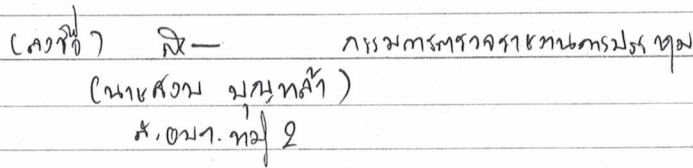 (ลงชื่อ) กรรมการตรวจรายงานการประชุม
(นายสงบ บุญกล้า)
ส.อบต. หมู่ 2